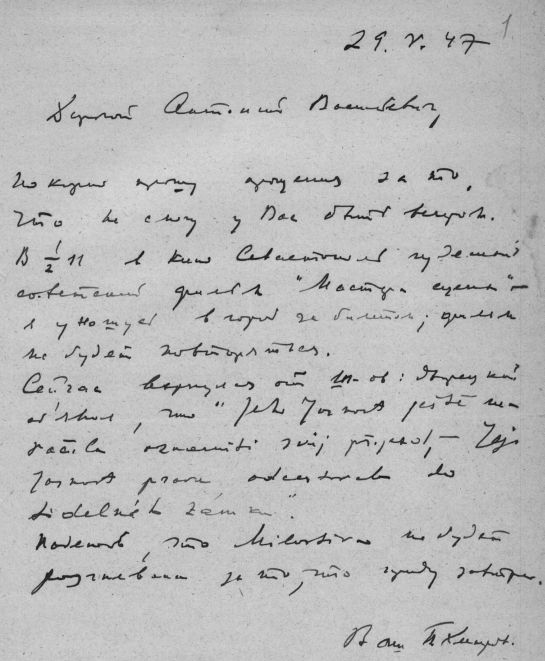 1
29. V. 47
Дорогой Антоний Васильевич,
Покорно прошу прощения за то,
что не смогу у Вас быть вечером.
В ½ 11 в кино Севастополь чудесный
советский фильм "Мастера сцены" –
я уношусь в город за билетом; фильм
не будет повторяться.
Сейчас вернулся от : дворецкий
объявил, что " Jeho Jasnost ještě ne-
ráčila oznámiti svůj příjezd, – Její
Jasnost právě odcestovala do
sídelního zámku".
Надеюсь, что Milostivá не будет
разгневана за то, что приду завтра.
Ваш